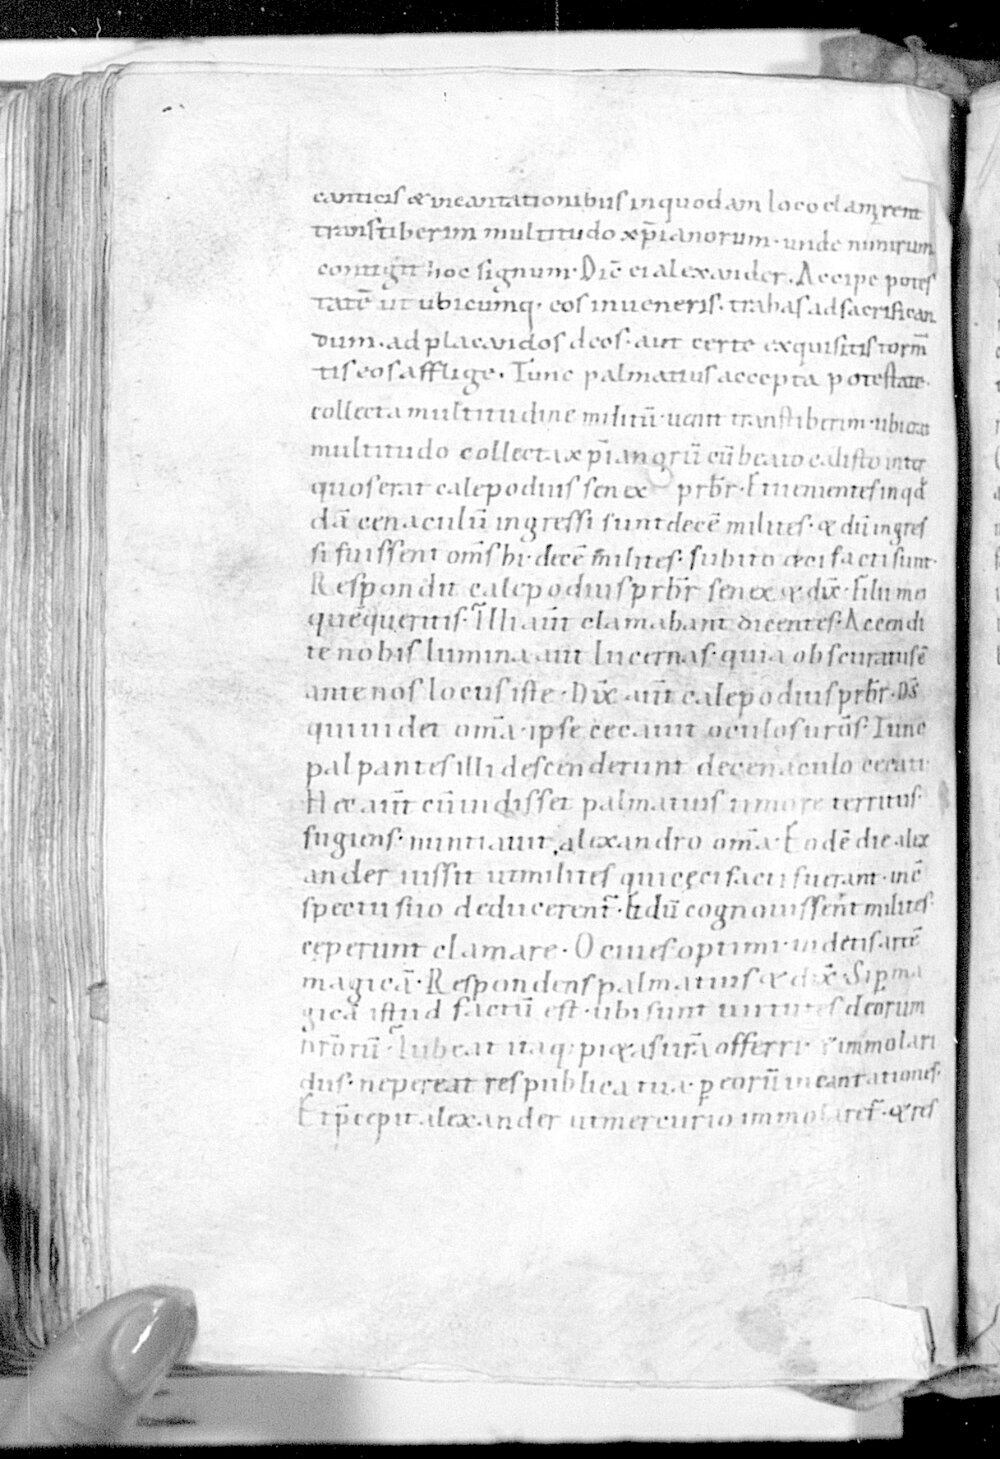 canticis & incantationibus inquodam loco clam̨rent
transtiberim multitudo xp̄ianorum· unde nimirum
contigit hoc signum· Dic̄ ei alexander. Accipe potes
tatē ut ubicumq· eos inueneris· trahas ad sacrifican
dum· ad placandos deos· aut certe exquisitis torm̄
tis eos afflige· Tunc palmatius accepta potestate·
collecta multitudine militū· uenit transtiberim· ubi erat
multitudo collecta xp̄ianorū cū beato calisto inter
quos erat calepodius senex prb̄r· Et uenientes in qd
dā cenaculū ingressi sunt decē milites· & dū ingres
si fuissent om̄s hi· decē milites· subito ceci facti sunt·
Respondit calepodius prb̄r senex & dix̄· filii mei
quē queritis· Illi aūt clamabant dicentes· Accendi
te nobis lumina aut lucernas· quia obscuratus ē
ante nos locus iste· Dix̄ aūt calepodius prb̄r· Ds̄
qui uidet om̄a· ipse cecauit oculos urōs· Tunc
palpantes illi descenderunt de cenaculo cecati·
Hec aūt cū uidisset palmatius timore territus·
fugiens· nuntiauit alexandro om̄a· Eodē die alex
ander iussit ut milites qui cęci facti fuerant· inc̄
spectu suo deducerent̄· Et dū cognouissent milites·
cęperunt clamare· O ciues optimi· uidetis artē
magicā· Respondens palmatius & dix̄· Si p̱ ma
gicā istud factū est· ubi sunt uirtutes deorum
nr̄orū· Iubeat itaq; pi&as ur̄a offerri· & immolari
diis· ne pereat respublica tua· p̱ eorū incantationes·
Et p̄cepit alexander ut mercurio immolaret̄· & res